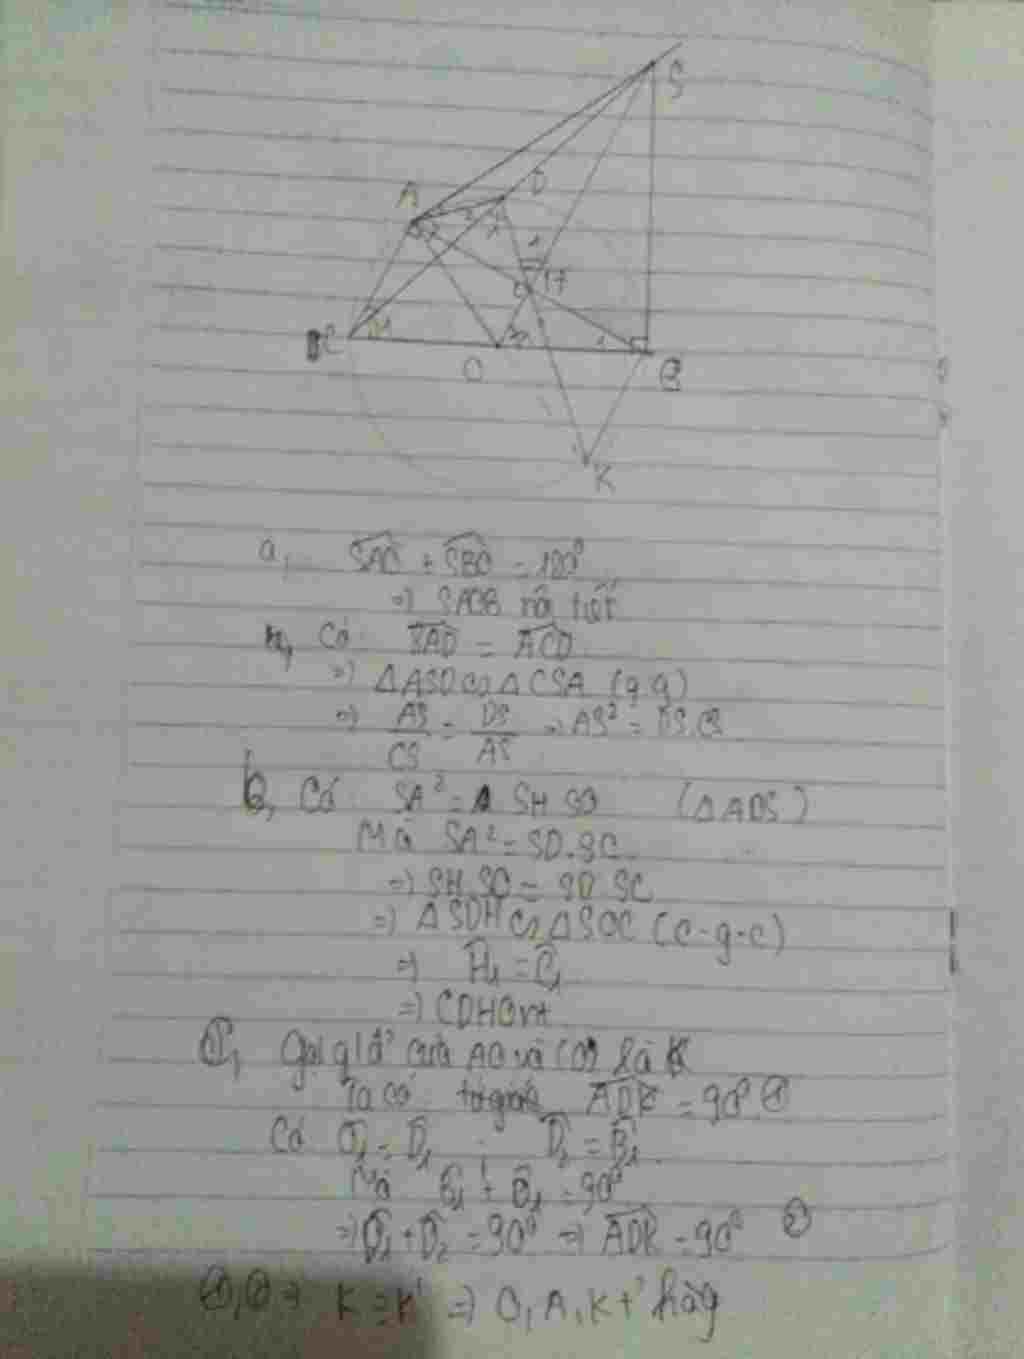 S
A
D
C
O
B
K
a, SAO + SBO = 180°
=) SAOB nội tiết
Có SAD = ACD
=) ΔASD ∽ ΔCSA (g.g)
=) AS/CS = DS/AS => AS² = DS.CS
b, Có SA² = SH SO (ΔAOS)
Mà SA² = SD.SC
=) SH.SO = SD SC
=) ΔSDH ∽ ΔSOC (c-g-c)
=) H₁ = C₁
=) CDHO nt
Ta có tứ giác ADK = 90° ①
Có O₁ = D₁ ; D₂ = B₁
Mà B₁ + O₁ = 90°
=) D₁ + D₂ = 90° => ADK = 90° ②
①,② => K ≡ K' => O, A, K t' hàg